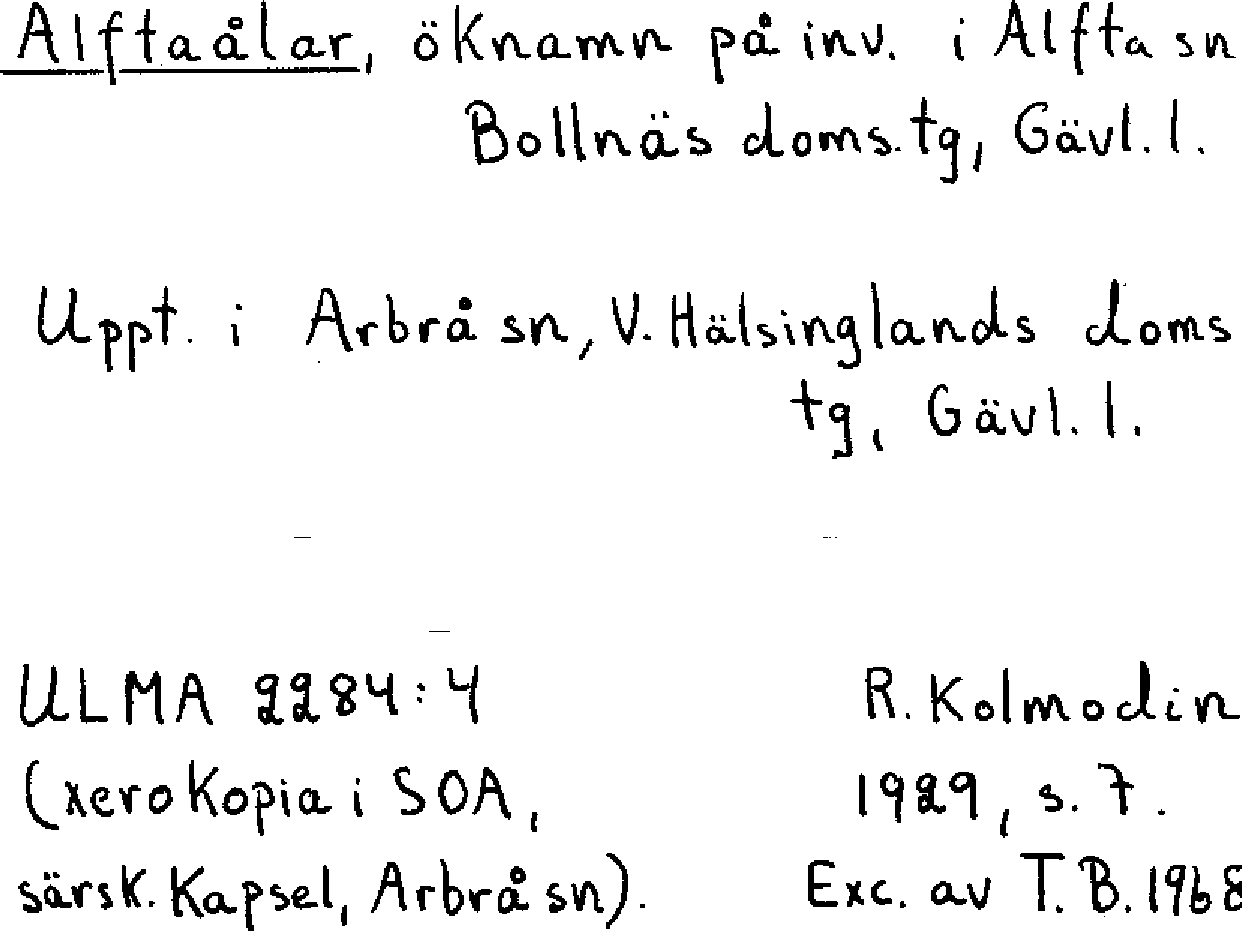 Alftaålar, öknamn på inv. i Alfta sn
Bollnäs doms.tg, Gävl. l.
Uppt. i Arbrå sn, V. Hälsinglands doms
tg, Gävl. l.
ULMA 2284:4
(xerokopia i SOA,
särsk. Kapsel, Arbrå sn).
R. Kolmodin
1929, s. 7.
Exc. av T.B. 1968